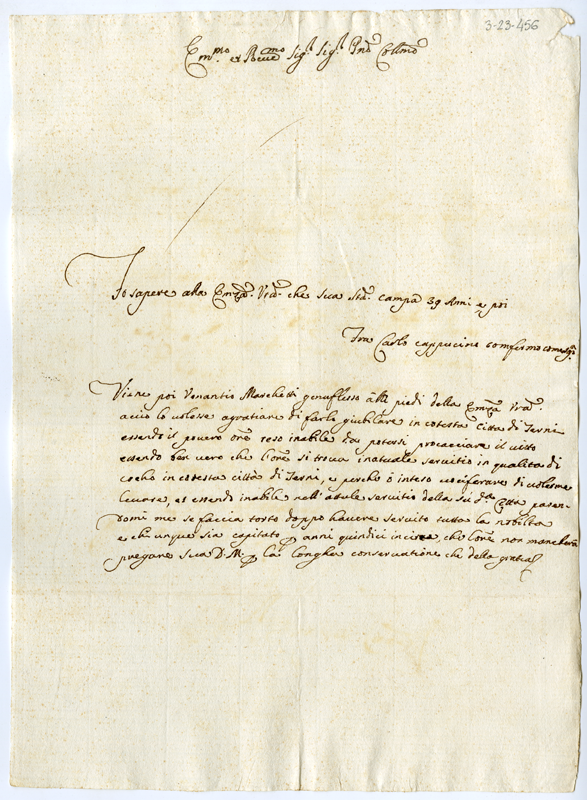 3-23-456
Em.mo et Reve.mo Sig.r Sig.r Pñe Colmo
Fo sapere alla Emza. Vra. che sua Sta. campa 39 Anni e poi
Fra Carlo cappucino comfermo come
Viene poi Venantio Marchetti genuflesso alli piedi della Emza Vra.
accio lo volesse agratiare di farlo giubilare in cotesta Citta di Terni
essendo il povero ore reso inabile da potersi procacciare il vitto
essendo ben vero che l'ore si trova inatuale servitio in qualita di
cocho in cotesta città di Terni, e perche ò inteso vociferare di volerme
levare, et essendo inabile nell'attule servitio della Citta paren-
domi me se faccia torto doppo havere servito tutta la nobilta
e chi unque sia capitato p anni quindici incirca che l'ore non mancherà
pregare Sua D. M. p la longha conservatione che della gratia